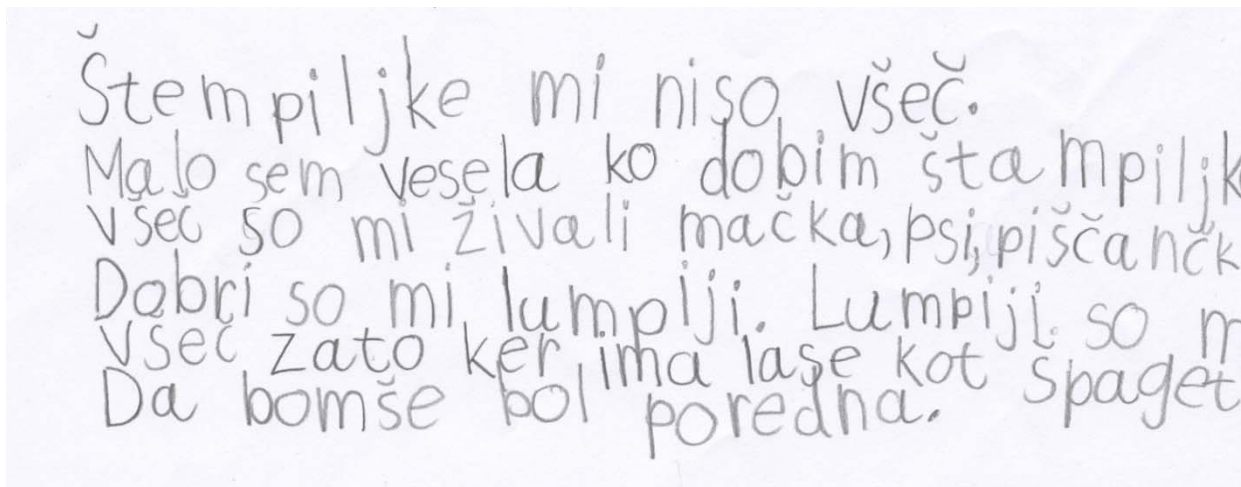 Štempiljke mi niso všeč.
Malo sem vesela ko dobim štampiljk
všeč so mi živali mačka, psi, piščančk
Dobri so mi lumpiji. Lumpiji so m
všeč zato ker ima lase kot špaget
Da bomše bol poredna.